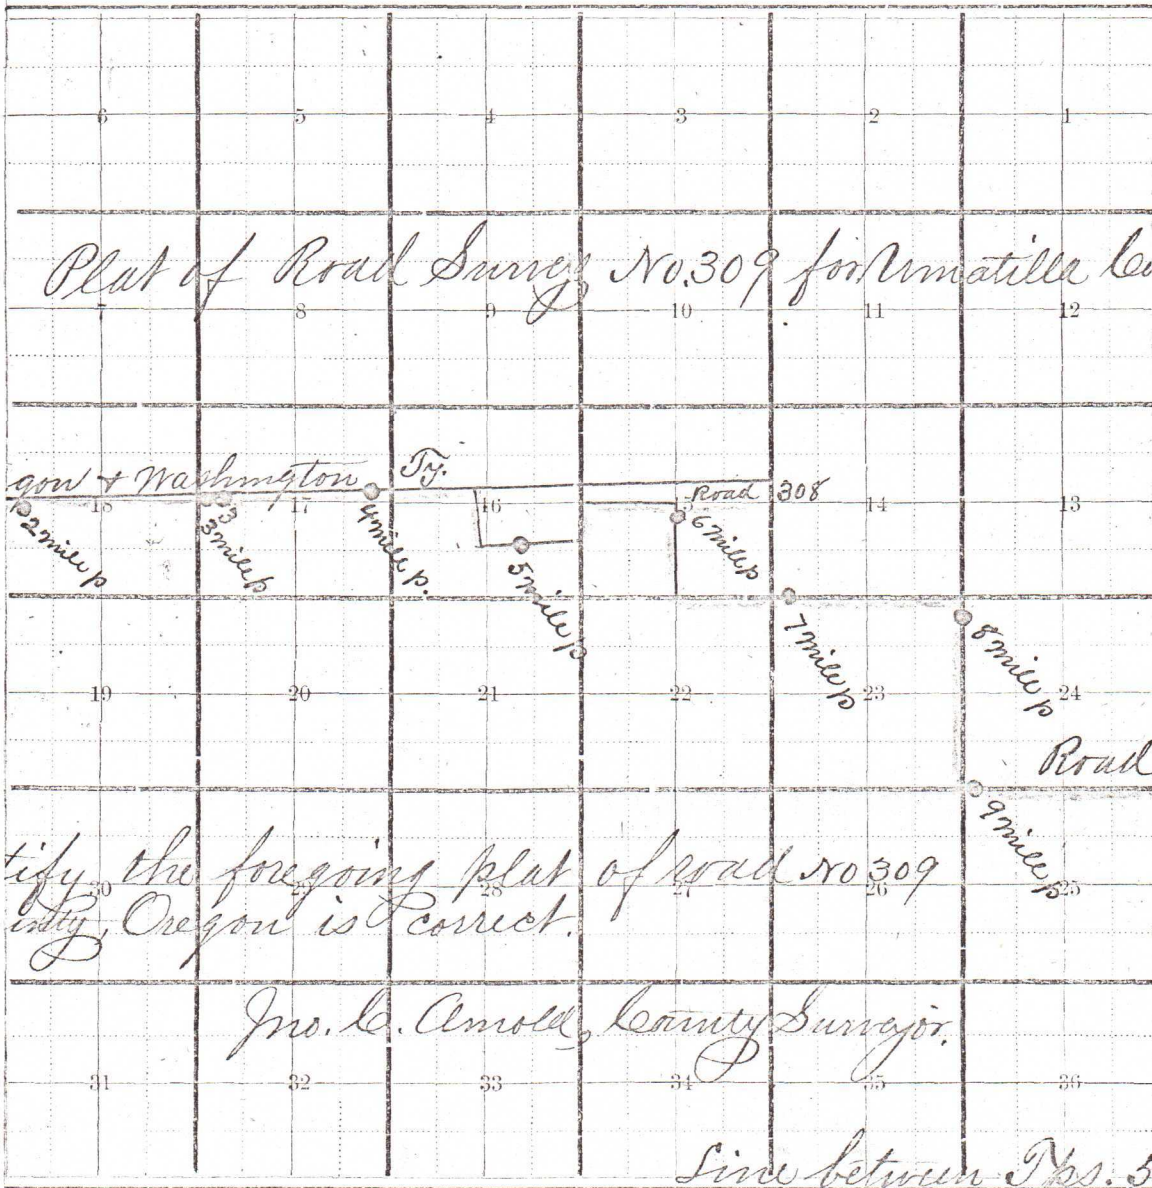 6 5 4 3 2 1
Plat of Road Survey No. 309 for Umatilla Co
7 8 9 10 11 12
gon & Washington Ty.
18 3 17 16 Road 308 14 13
2 mile p 3 mile p 4 mile p. 5 mile p 6 mile p
7 mile p 8 mile p
19 20 21 22 23 24
Road
9 mile p
tify the foregoing plat of road No 309
30 29 28 27 26 25
unty, Oregon is correct.
Jno. C. Arnold, County Surveyor.
31 32 33 34 35 36
Line between Tps. 5